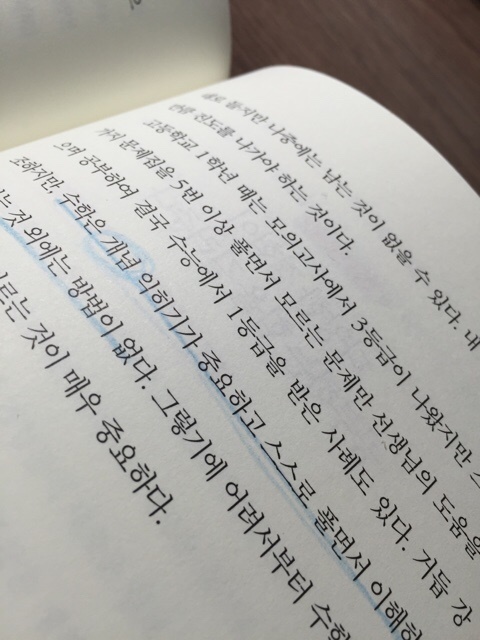 별로 들지만 나중에는 남는 것이 없을 수 있다. 내
만큼 진도를 나가야 하는 것이다.
고등학교 1학년 때는 모의고사에서 3등급이 나왔지만 스
가지 문제집을 5번 이상 풀면서 모르는 문제만 선생님의 도움을
으며 공부하여 결국 수능에서 1등급을 받은 사례도 있다. 거듭 강
조하지만, 수학은 개념 익히기가 중요하고 스스로 풀면서 이해하
는 것 외에는 방법이 없다. 그렇기에 어려서부터 수학
르는 것이 매우 중요하다.